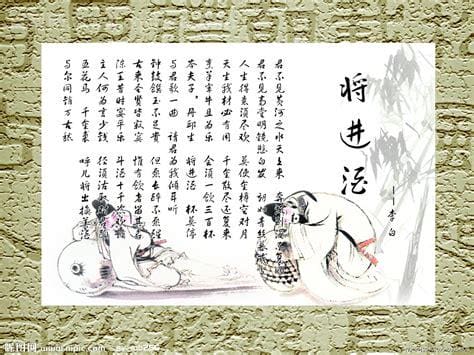 将进酒
——李白
君不见黄河之水天上来
君不见高堂明镜悲白发
人生得意须尽欢 莫使金樽空对月
天生我材必有用 千金散尽还复来
烹羊宰牛且为乐 会须一饮三百杯
岑夫子 丹邱生 将进酒 杯莫停
与君歌一曲 请君为我倾耳听
钟鼓馔玉不足贵 但愿长醉不愿醒
古来圣贤皆寂寞 惟有饮者留其名
陈王昔时宴平乐 斗酒十千
主人何为言少钱
五花马 千金裘 呼儿将出换美酒
与尔同销万古愁
昵图网 www.nipic.com